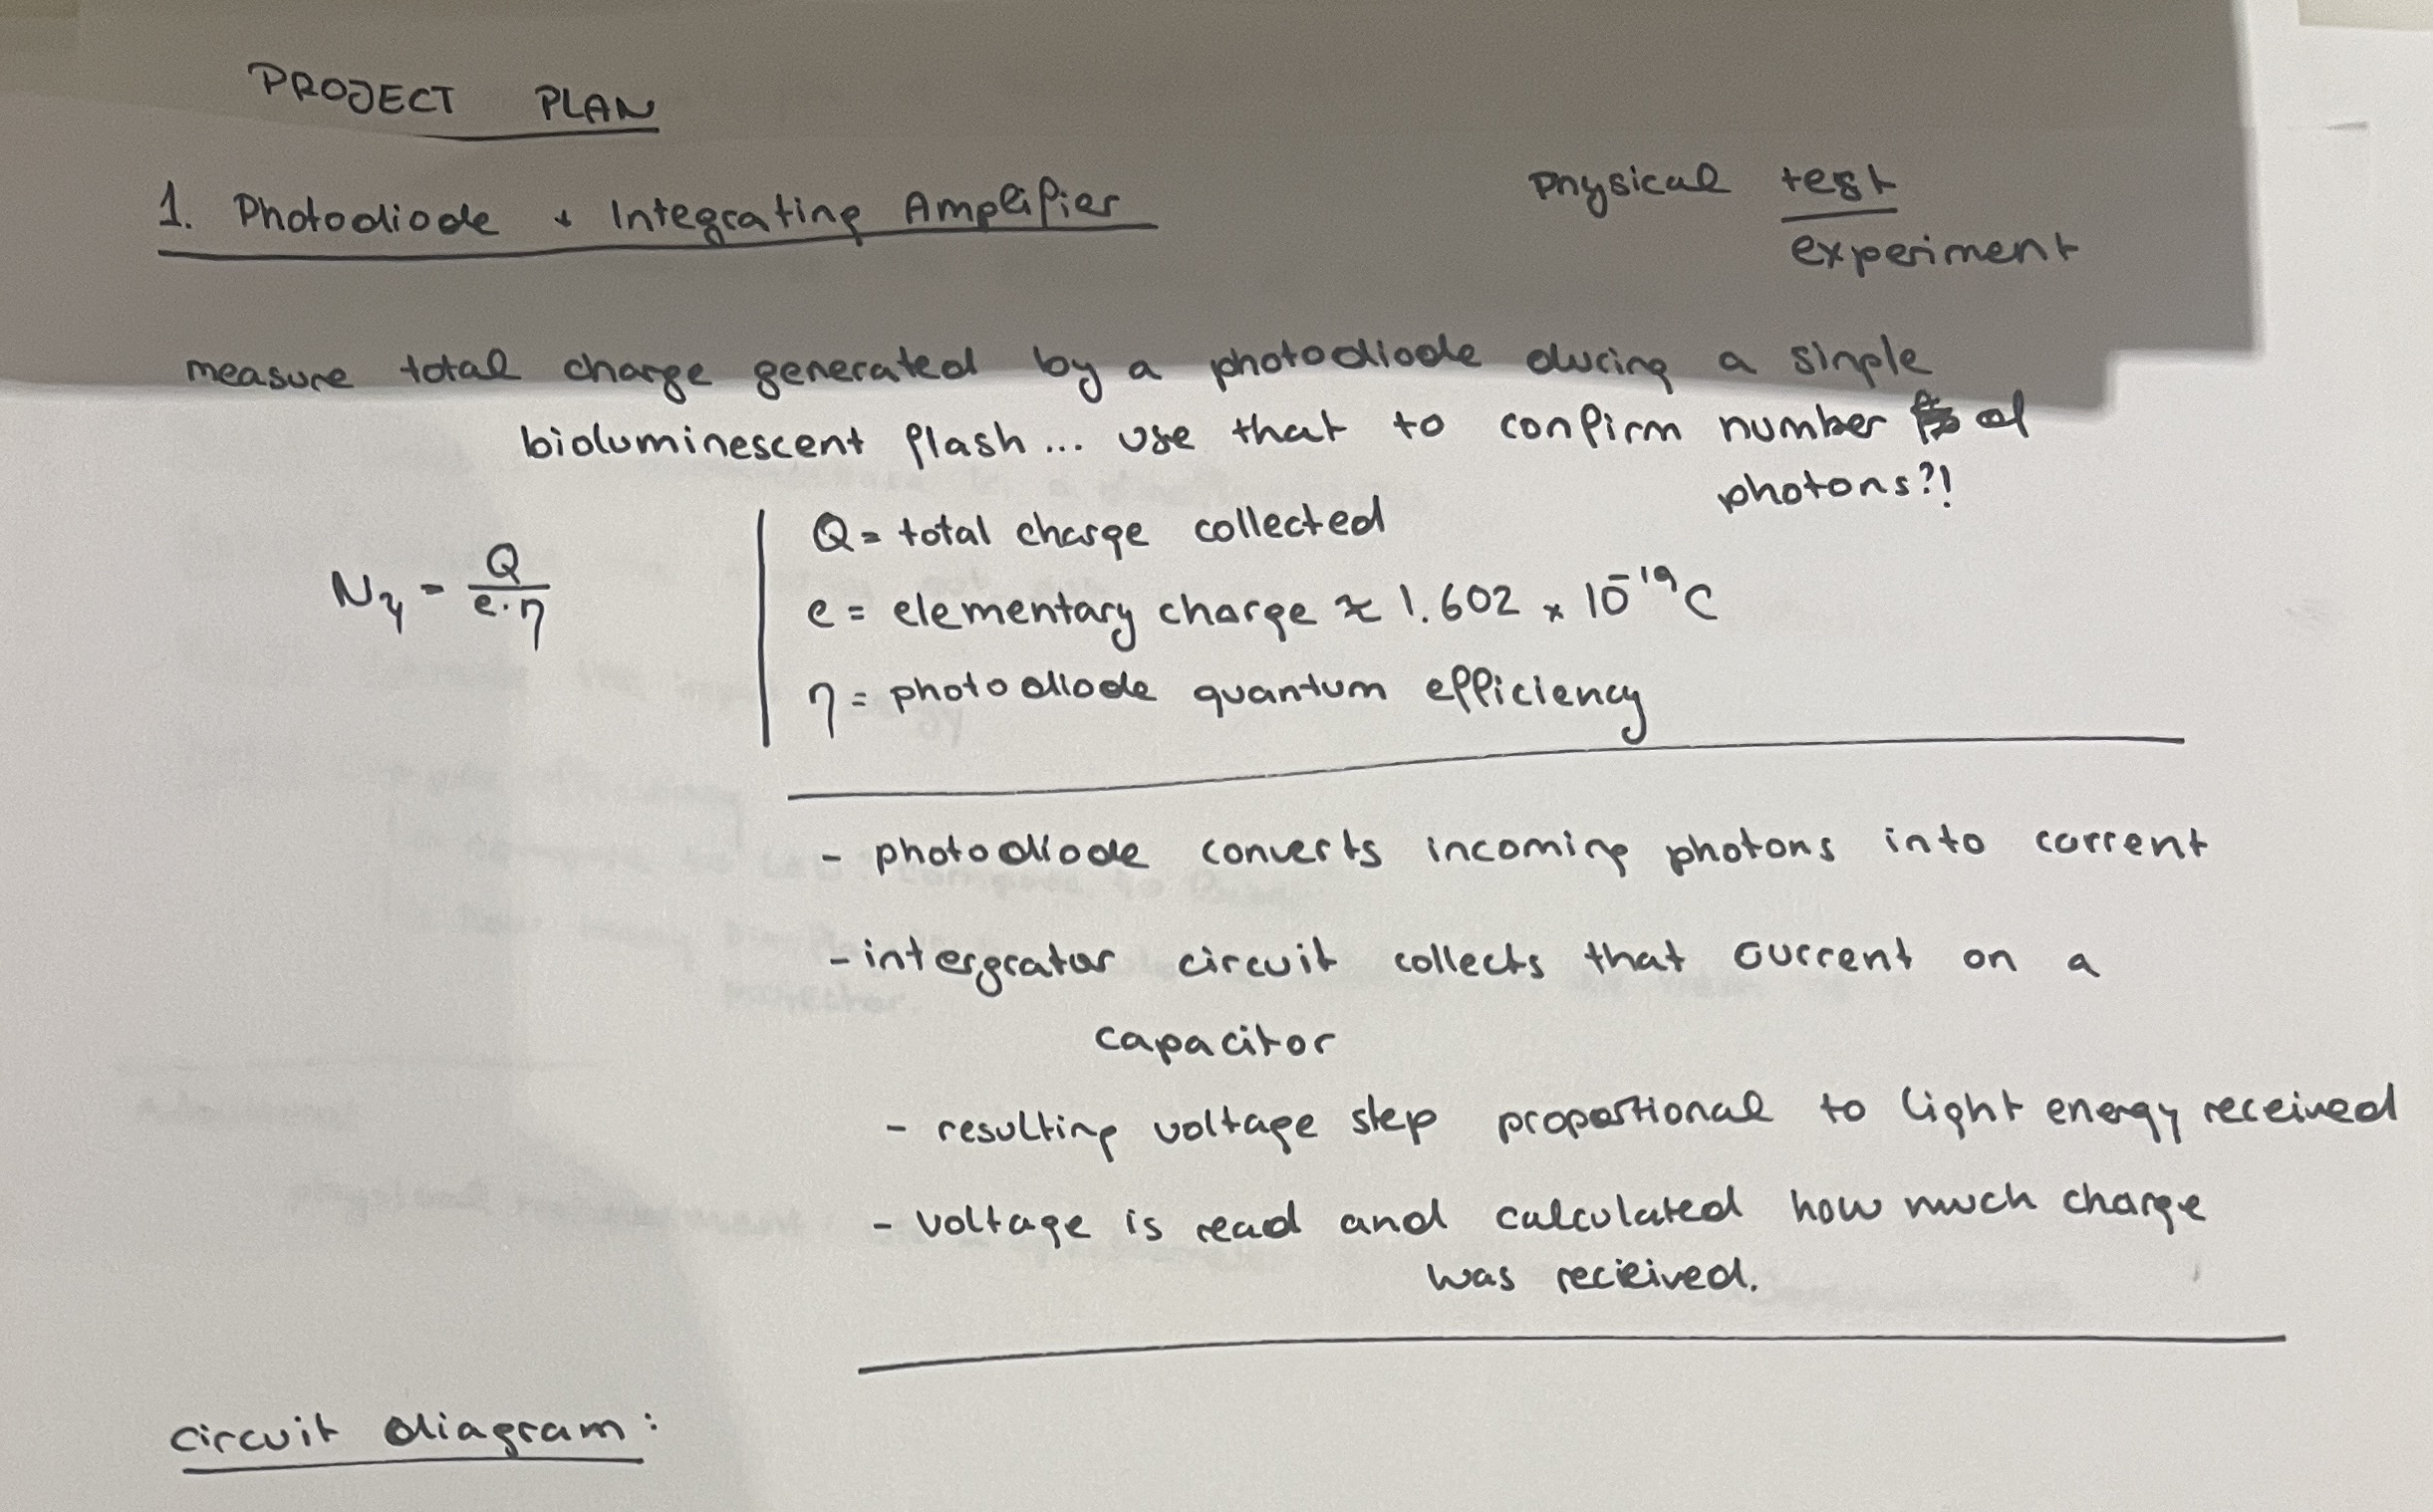 PROJECT PLAN
1. Photodiode + Integrating Amplifier
Physical test
experiment
measure total charge generated by a photodiode during a single
bioluminescent flash... use that to confirm number of
photons?!
Nγ = Q / e·η
Q = total charge collected
e = elementary charge ≈ 1.602 × 10⁻¹⁹ C
η = photodiode quantum efficiency
- photodiode converts incoming photons into current
- intergrator circuit collects that current on a
capacitor
- resulting voltage step proportional to light energy received
- voltage is read and calculated how much charge
was recieived.
circuit diagram: